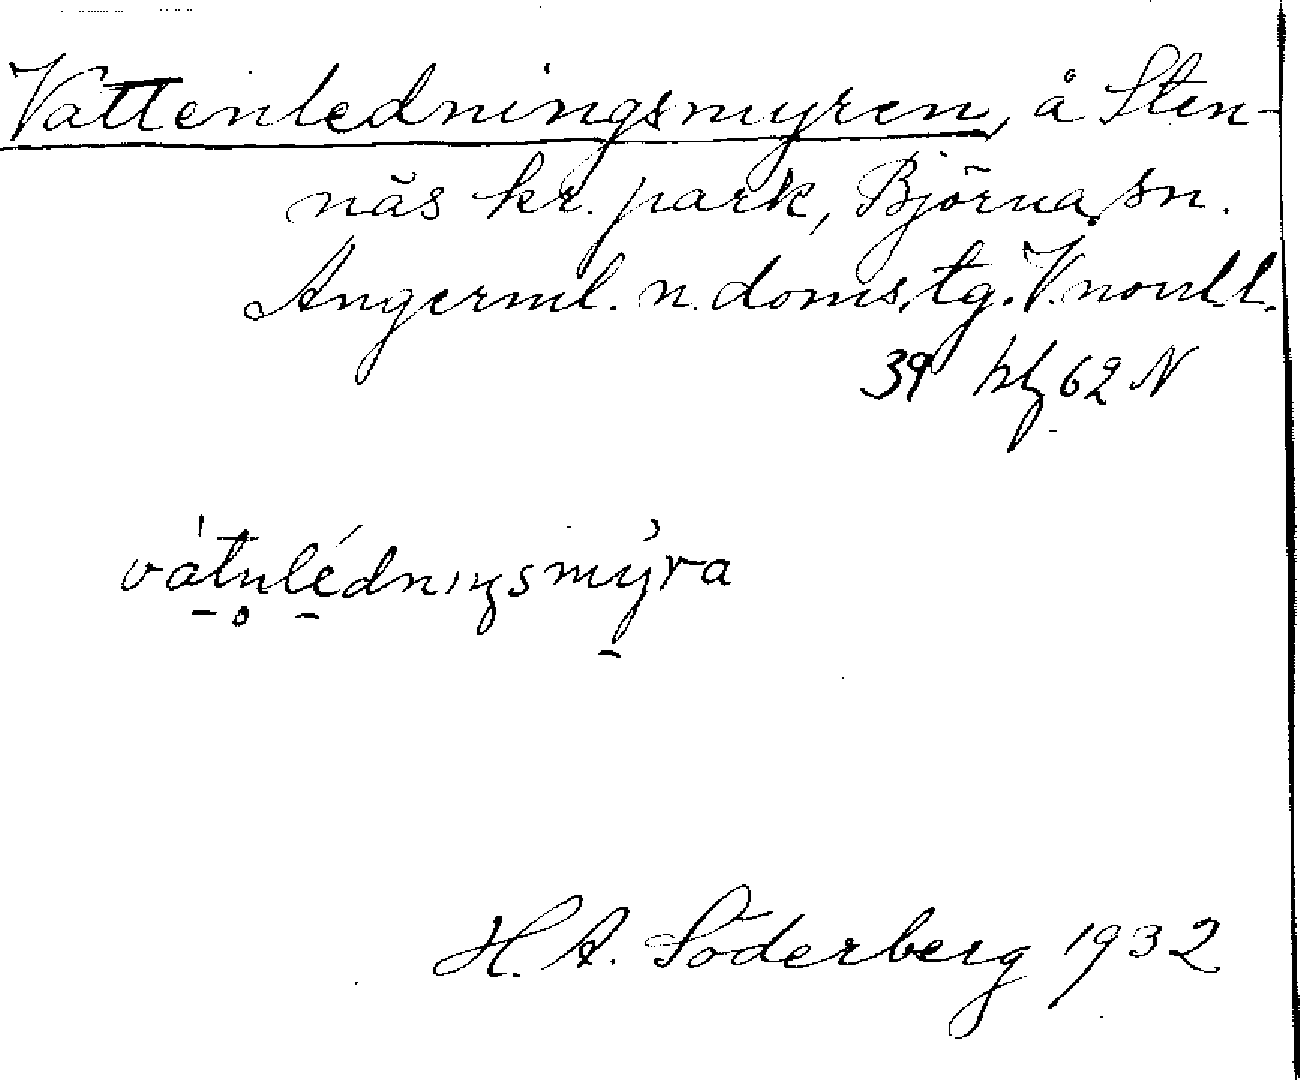 Vattenledningsmyren, å Sten-
näs kr. park, Björna sn.
Ångerml. n. doms.tg. V.norrl l.
39 hf 62 N
vátnlédnıŋsmýra
H. A. Söderberg 1932